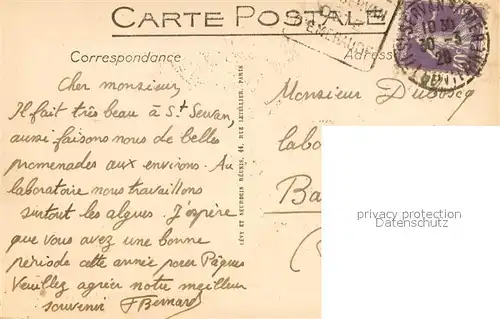 CARTE POSTALE
Correspondance
Adresse
10 30
30 -3
26
Cher monsieur,
Il fait très beau à St Servan,
aussi faisons nous de belles
promenades aux environs. Au
laboratoire nous travaillons
surtout les algues. J'espère
que vous avez une bonne
période cette année pour Pâques
Veuillez agréer notre meilleur
souvenir F Bernard
LÉVY ET NEURDEIN RÉUNIS, 44, RUE LETELLIER, PARIS
Monsieur Duboscq
labo
Ba
privacy protection
Datenschutz